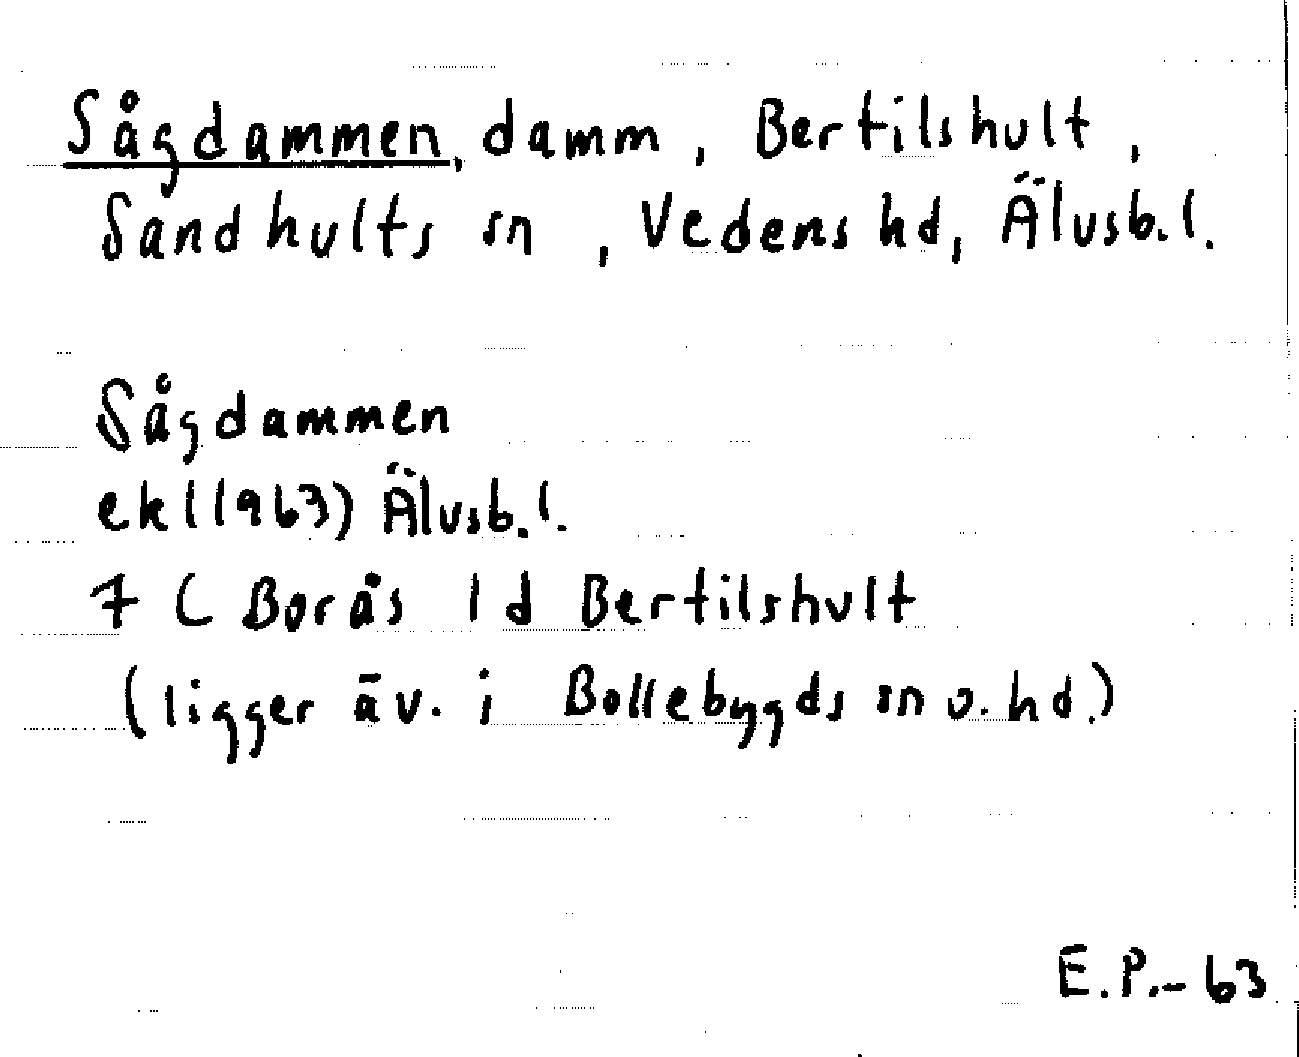 Sågdammen, damm, Bertilshult,
Sandhults sn, Vedens hd, Älvsb.l.
Sågdammen
ek(1963) Älvsb.l.
7 C Borås 1 d Bertilshult
(ligger äv. i Bollebygds sn o. hd.)
E.P.-63